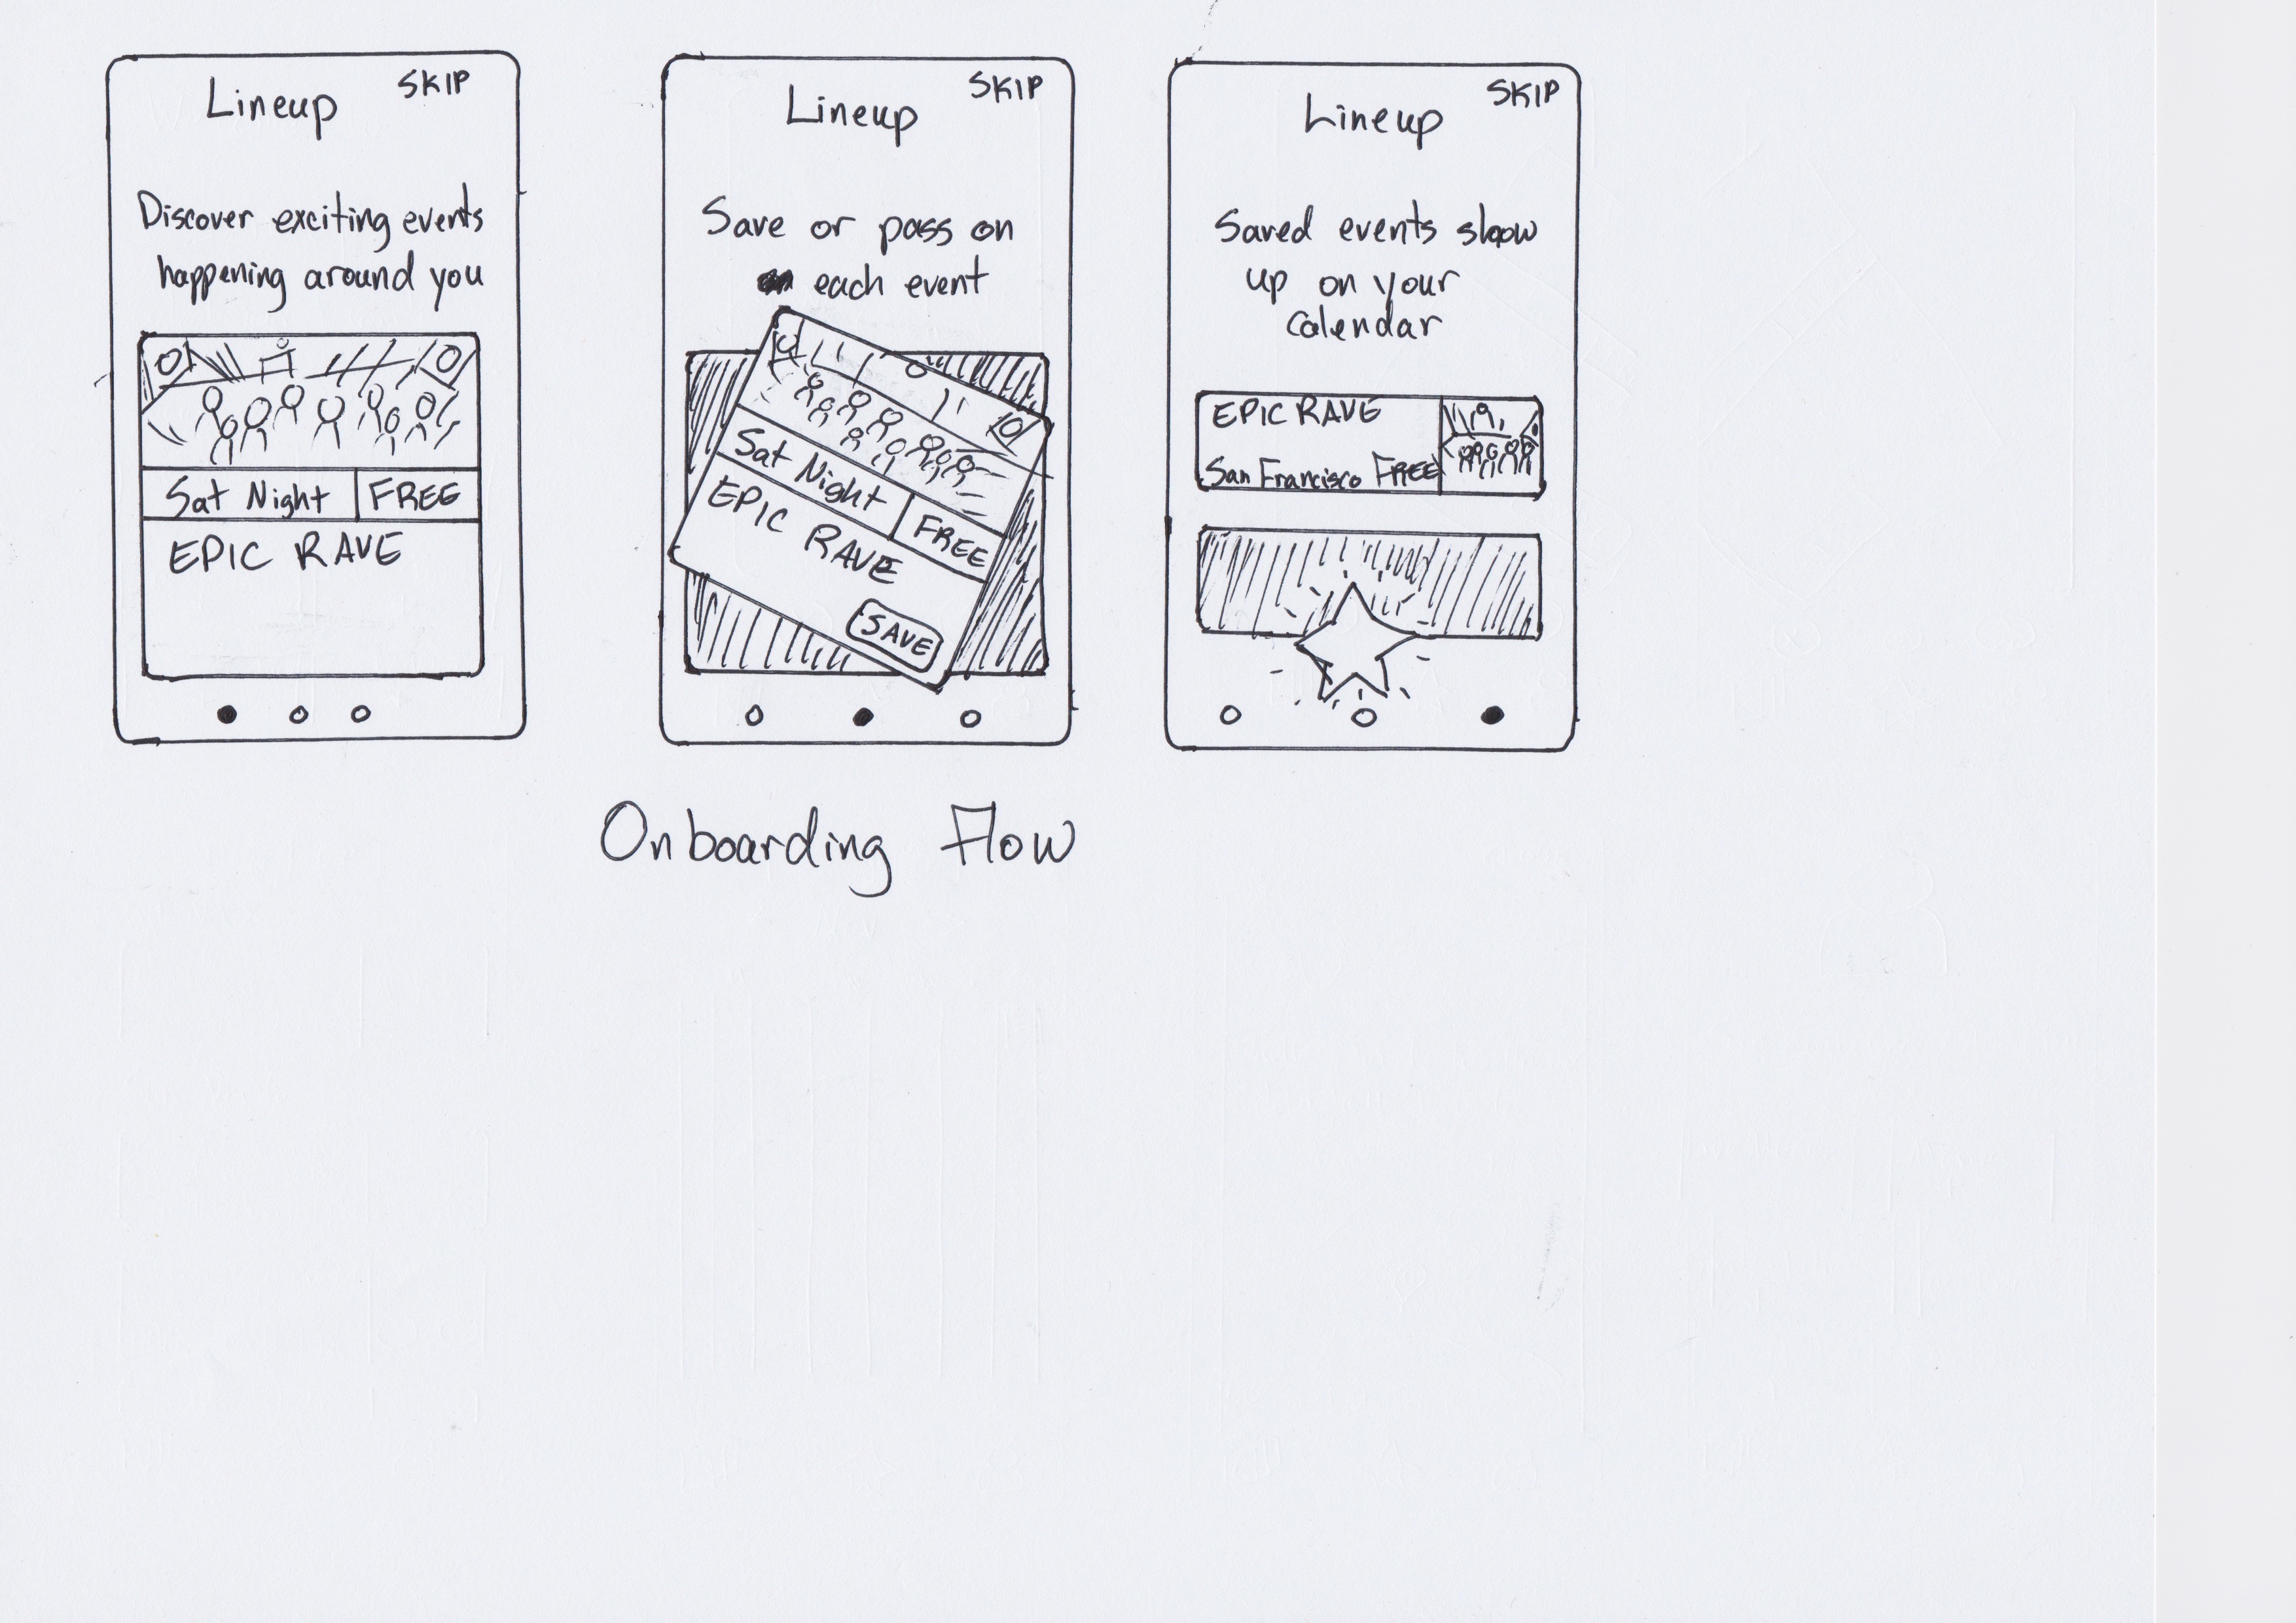 Lineup
SKIP
Discover exciting events
happening around you
Sat Night
FREE
EPIC RAVE
Lineup
SKIP
Save or pass on
each event
Sat Night
FREE
EPIC RAVE
SAVE
Lineup
SKIP
Saved events show
up on your
Calendar
EPIC RAVE
San Francisco FREE
Onboarding Flow